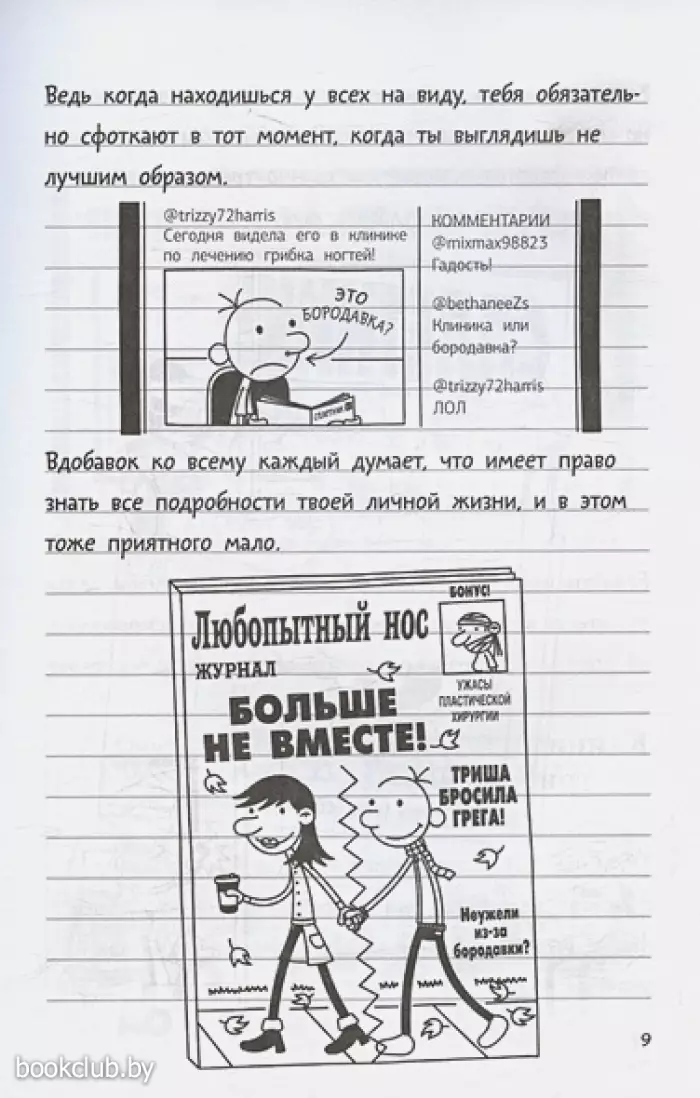 Ведь когда находишься у всех на виду, тебя обязатель-
но сфоткают в тот момент, когда ты выглядишь не
лучшим образом.
@trizzy72harris
Сегодня видела его в клинике
по лечению грибка ногтей!
ЭТО
БОРОДАВКА?
КОММЕНТАРИИ
@mixmax98823
Гадость!
@bethaneeZs
Клиника или
бородавка?
@trizzy72harris
ЛОЛ
Вдобавок ко всему каждый думает, что имеет право
знать все подробности твоей личной жизни, и в этом
тоже приятного мало.
БОНУС!
Любопытный нос
ЖУРНАЛ
УЖАСЫ
ПЛАСТИЧЕСКОЙ
ХИРУРГИИ
БОЛЬШЕ
НЕ ВМЕСТЕ!
ТРИША
БРОСИЛА
ГРЕГА!
Неужели
из-за
бородавки?
9
bookclub.by